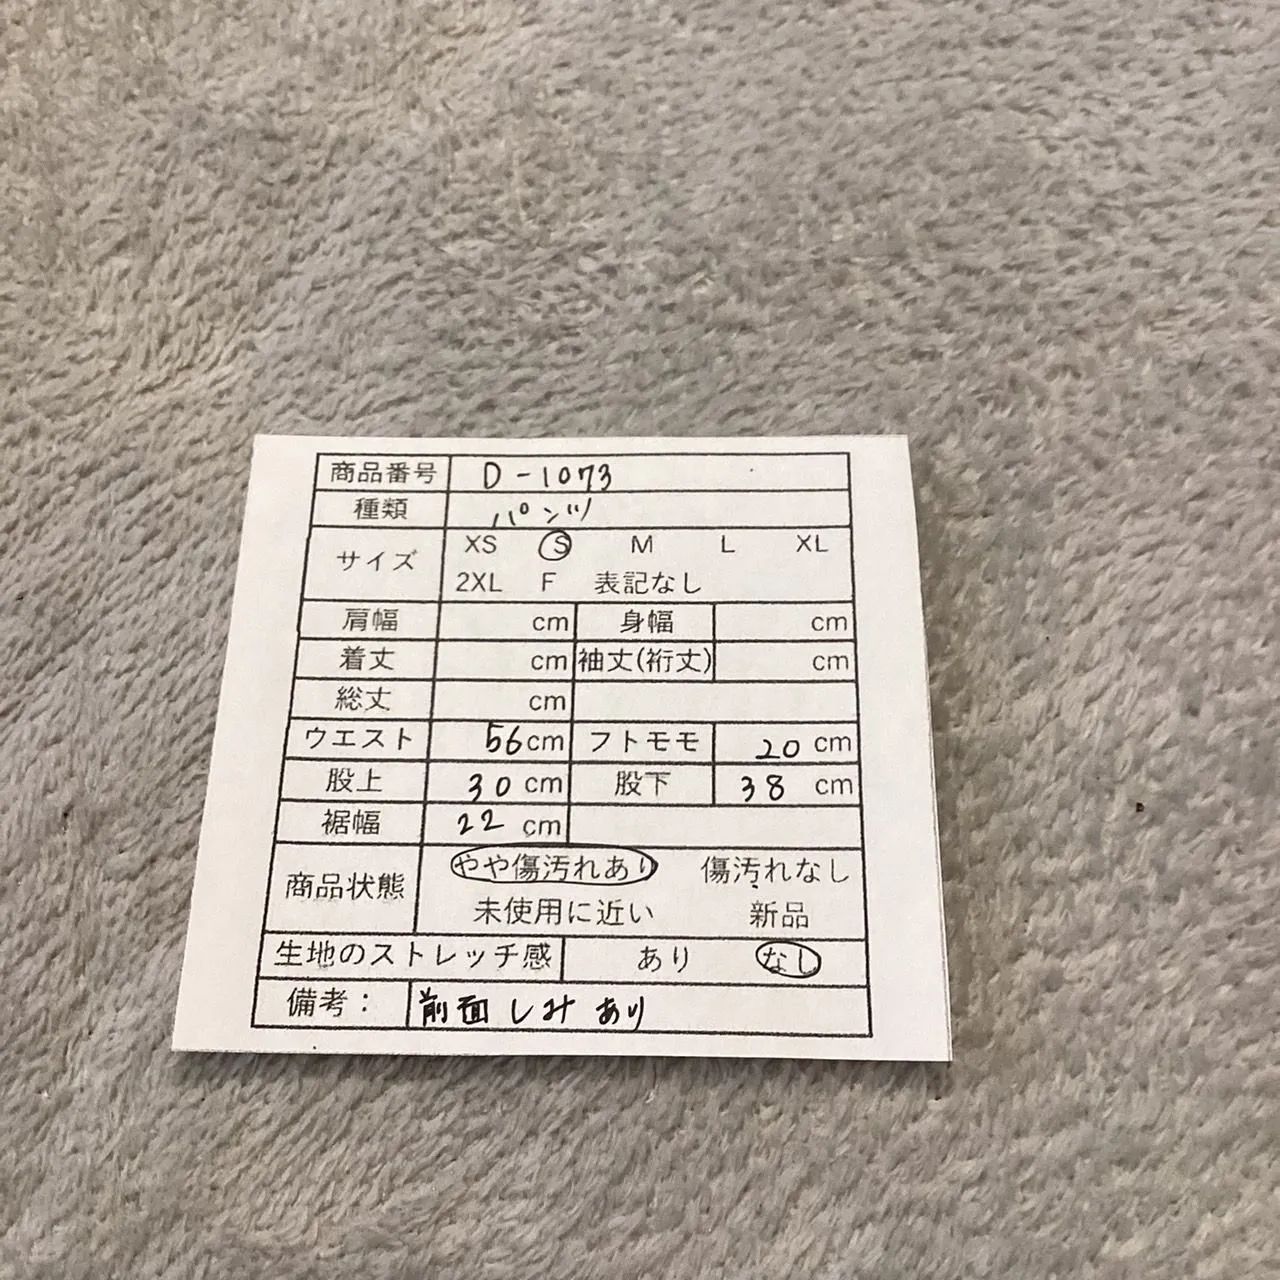 商品番号 D-1073
種類 パンツ
サイズ XS S M L XL
2XL F 表記なし
肩幅 cm 身幅 cm
着丈 cm 袖丈(裄丈) cm
総丈 cm
ウエスト 56cm フトモモ 20 cm
股上 30 cm 股下 38 cm
裾幅 22 cm
商品状態 やや傷汚れあり 傷汚れなし
未使用に近い 新品
生地のストレッチ感 あり なし
備考： 前面しみあり